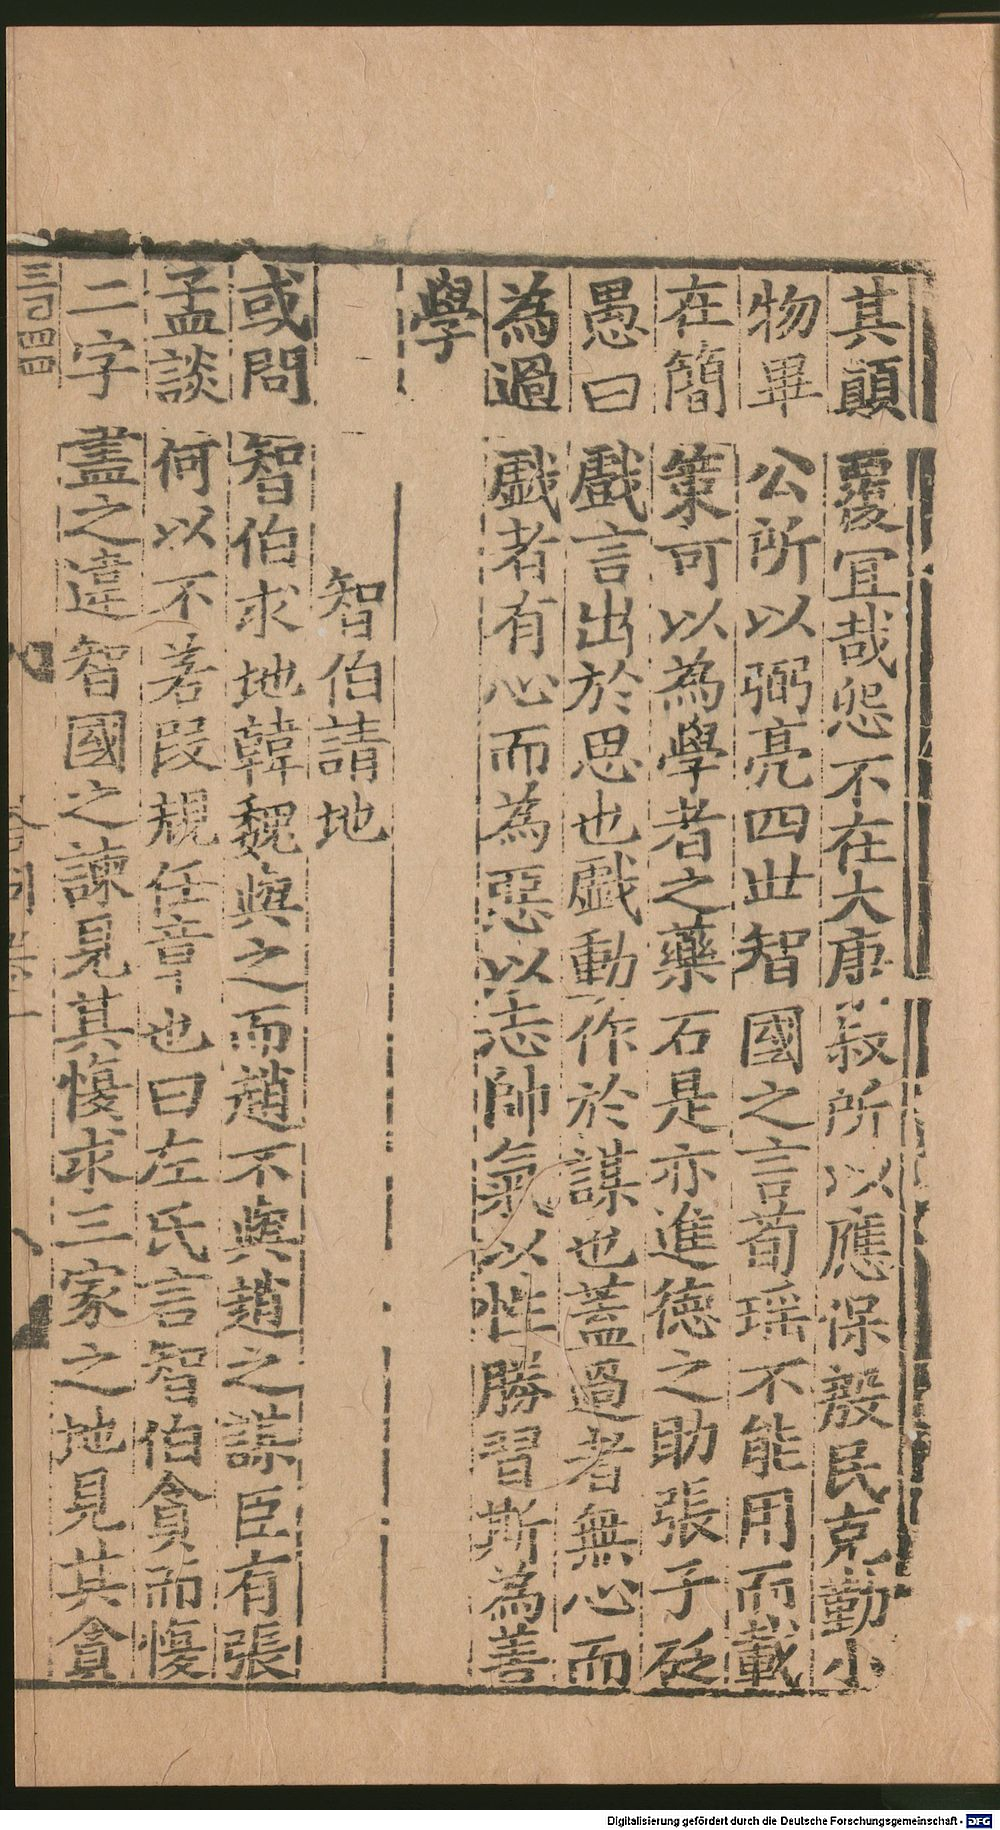 其顛覆宜哉怨不在大康叔所以應保殷民克勤小
物畢公所以弼亮四世智國之言荀瑶不能用而載
在簡策可以為學者之藥石是亦進德之助張子砭
愚曰戲言出於思也戲動作於謀也蓋過者無心而
為過戲者有心而為惡以志帥氣以性勝習斯為善
學
智伯請地
或問智伯求地韓魏與之而趙不與趙之謀臣有張
孟談何以不若段規任章也曰左氏言智伯貪而愎
二字盡之違智國之諫見其愎求三家之地見其貪
三百四四
Digitalisierung gefördert durch die Deutsche Forschungsgemeinschaft - DFG